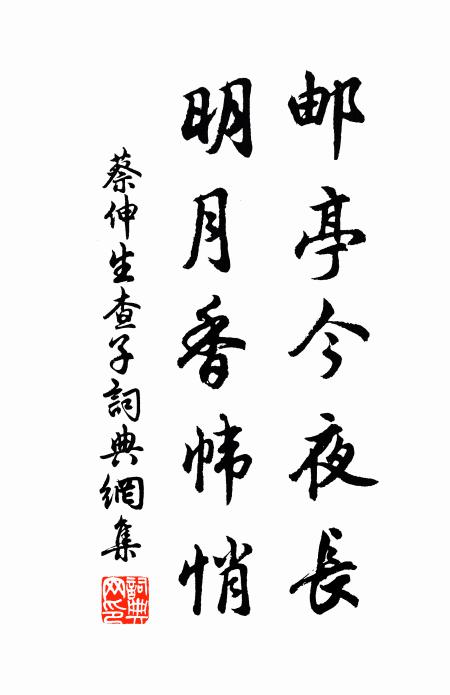 邮亭今夜長
明月香幃悄
蔡伸生查子詞典網集
詞典网印